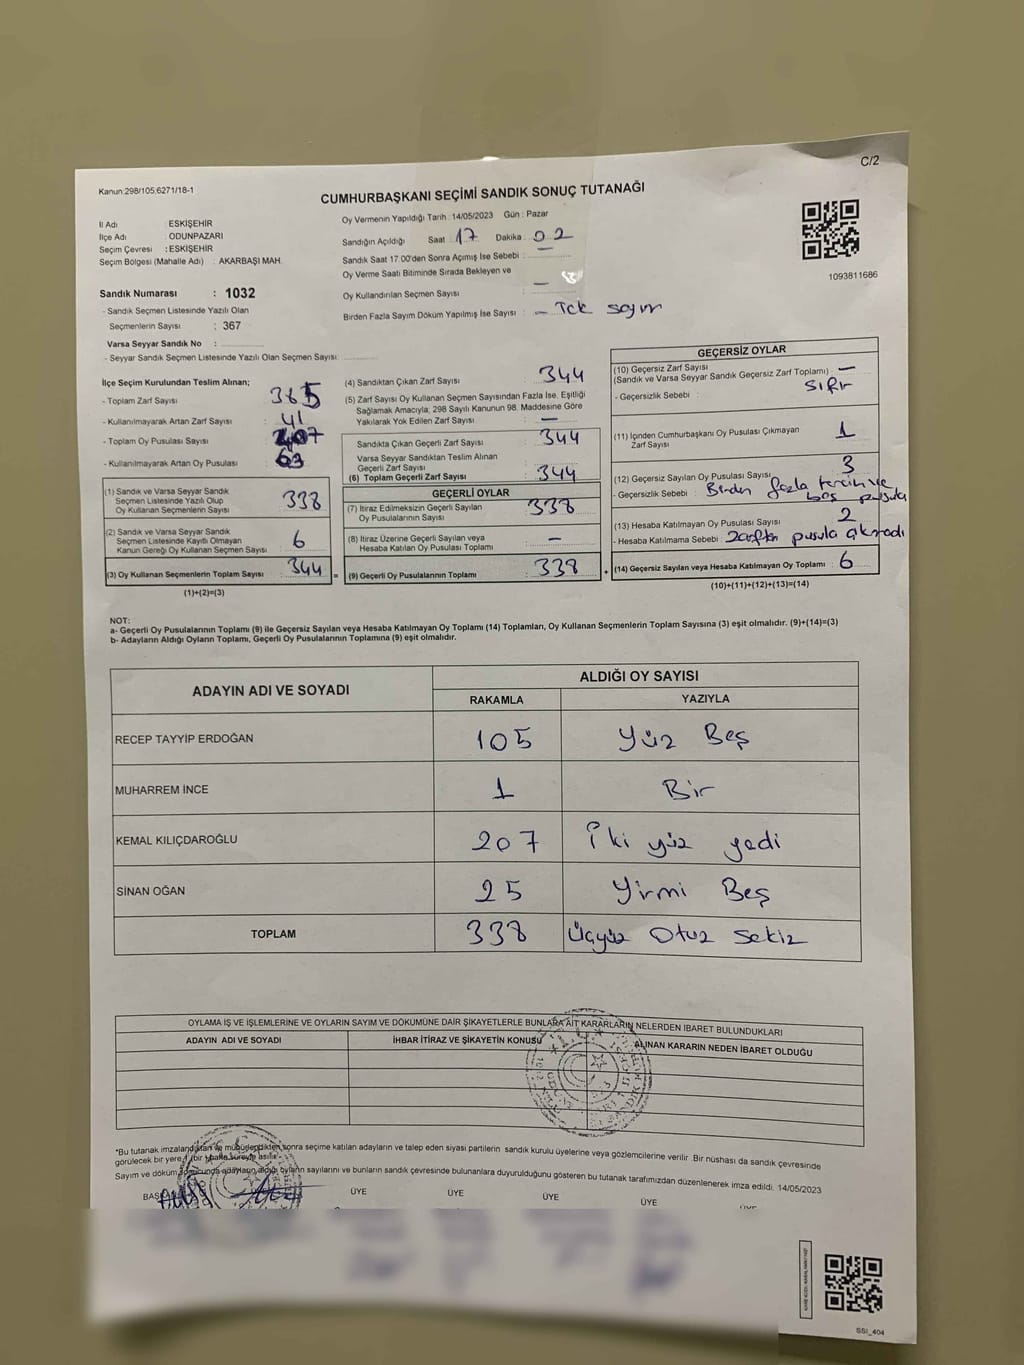 C/2
Kanun:298/105;6271/18-1
CUMHURBAŞKANI SEÇİMİ SANDIK SONUÇ TUTANAĞI
İl Adı : ESKİŞEHİR
İlçe Adı : ODUNPAZARI
Seçim Çevresi : ESKİŞEHİR
Seçim Bölgesi (Mahalle Adı) : AKARBAŞI MAH.
Oy Vermenin Yapıldığı Tarih : 14/05/2023 Gün : Pazar
Sandığın Açıldığı Saat : 17 Dakika : 02
Sandık Saat 17.00'den Sonra Açımış İse Sebebi : —
Oy Verme Saati Bitiminde Sırada Bekleyen ve
Oy Kullandırılan Seçmen Sayısı : —
Birden Fazla Sayım Döküm Yapılmış İse Sayısı : — Tek sayım
1093811686
Sandık Numarası : 1032
- Sandık Seçmen Listesinde Yazılı Olan
Seçmenlerin Sayısı : 367
Varsa Seyyar Sandık No :
- Seyyar Sandık Seçmen Listesinde Yazılı Olan Seçmen Sayısı:
İlçe Seçim Kurulundan Teslim Alınan;
- Toplam Zarf Sayısı : 385
- Kullanılmayarak Artan Zarf Sayısı : 41
- Toplam Oy Pusulası Sayısı : 407
- Kullanılmayarak Artan Oy Pusulası : 63
(1) Sandık ve Varsa Seyyar Sandık
Seçmen Listesinde Yazılı Olup
Oy Kullanan Seçmenlerin Sayısı : 338
(2) Sandık ve Varsa Seyyar Sandık
Seçmen Listesinde Kayıtlı Olmayan
Kanun Gereği Oy Kullanan Seçmen Sayısı : 6
(3) Oy Kullanan Seçmenlerin Toplam Sayısı : 344
(1)+(2)=(3)
(4) Sandıktan Çıkan Zarf Sayısı : 344
(5) Zarf Sayısı Oy Kullanan Seçmen Sayısından Fazla İse, Eşitliği
Sağlamak Amacıyla; 298 Sayılı Kanunun 98. Maddesine Göre
Yakılarak Yok Edilen Zarf Sayısı : —
Sandıkta Çıkan Geçerli Zarf Sayısı : 344
Varsa Seyyar Sandıktan Teslim Alınan
Geçerli Zarf Sayısı :
(6) Toplam Geçerli Zarf Sayısı : 344
GEÇERLİ OYLAR
(7) İtiraz Edilmeksizin Geçerli Sayılan
Oy Pusulalarının Sayısı : 338
(8) İtiraz Üzerine Geçerli Sayılan veya
Hesaba Katılan Oy Pusulaları Toplamı : —
= (9) Geçerli Oy Pusulalarının Toplamı : 338
GEÇERSİZ OYLAR
(10) Geçersiz Zarf Sayısı
(Sandık ve Varsa Seyyar Sandık Geçersiz Zarf Toplamı) : —
- Geçersizlik Sebebi : Sıfır
(11) İçinden Cumhurbaşkanı Oy Pusulası Çıkmayan
Zarf Sayısı : 1
(12) Geçersiz Sayılan Oy Pusulası Sayısı : 3
- Geçersizlik Sebebi : Birden fazla tercih ve
boş pusula
(13) Hesaba Katılmayan Oy Pusulası Sayısı : 2
- Hesaba Katılmama Sebebi : Zarftan pusula çıkmadı
+ (14) Geçersiz Sayılan veya Hesaba Katılmayan Oy Toplamı : 6
(10)+(11)+(12)+(13)=(14)
NOT:
a- Geçerli Oy Pusulalarının Toplamı (9) ile Geçersiz Sayılan veya Hesaba Katılmayan Oy Toplamı (14) Toplamları, Oy Kullanan Seçmenlerin Toplam Sayısına (3) eşit olmalıdır. (9)+(14)=(3)
b- Adayların Aldığı Oyların Toplamı, Geçerli Oy Pusulalarının Toplamına (9) eşit olmalıdır.
ADAYIN ADI VE SOYADI ALDIĞI OY SAYISI
RAKAMLA YAZIYLA
RECEP TAYYİP ERDOĞAN 105 Yüz Beş
MUHARREM İNCE 1 Bir
KEMAL KILIÇDAROĞLU 207 İki yüz yedi
SİNAN OĞAN 25 Yirmi Beş
TOPLAM 338 Üçyüz Otuz Sekiz
OYLAMA İŞ VE İŞLEMLERİNE VE OYLARIN SAYIM VE DÖKÜMÜNE DAİR ŞİKAYETLERLE BUNLARA AİT KARARLARIN NELERDEN İBARET BULUNDUKLARI
ADAYIN ADI VE SOYADI İHBAR İTİRAZ VE ŞİKAYETİN KONUSU ALINAN KARARIN NEDEN İBARET OLDUĞU
*Bu tutanak imzalandıktan ve mühürlendikten sonra seçime katılan adayların ve talep eden siyasi partilerin sandık kurulu üyelerine veya gözlemcilerine verilir. Bir nüshası da sandık çevresinde
görülecek bir yere asılır.
Sayım ve döküm sonucunda adayların aldığı oyların sayılarını ve bunların sandık çevresinde bulunanlara duyurulduğunu gösteren bu tutanak tarafımızdan düzenlenerek imza edildi. 14/05/2023
BAŞKAN ÜYE ÜYE ÜYE ÜYE
SSI_404